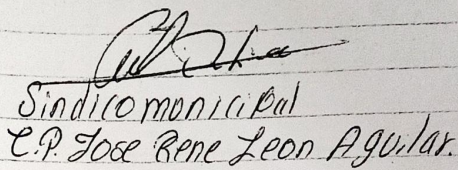 Sindico monicipal
C.P. Jose Rene Leon Aguilar.